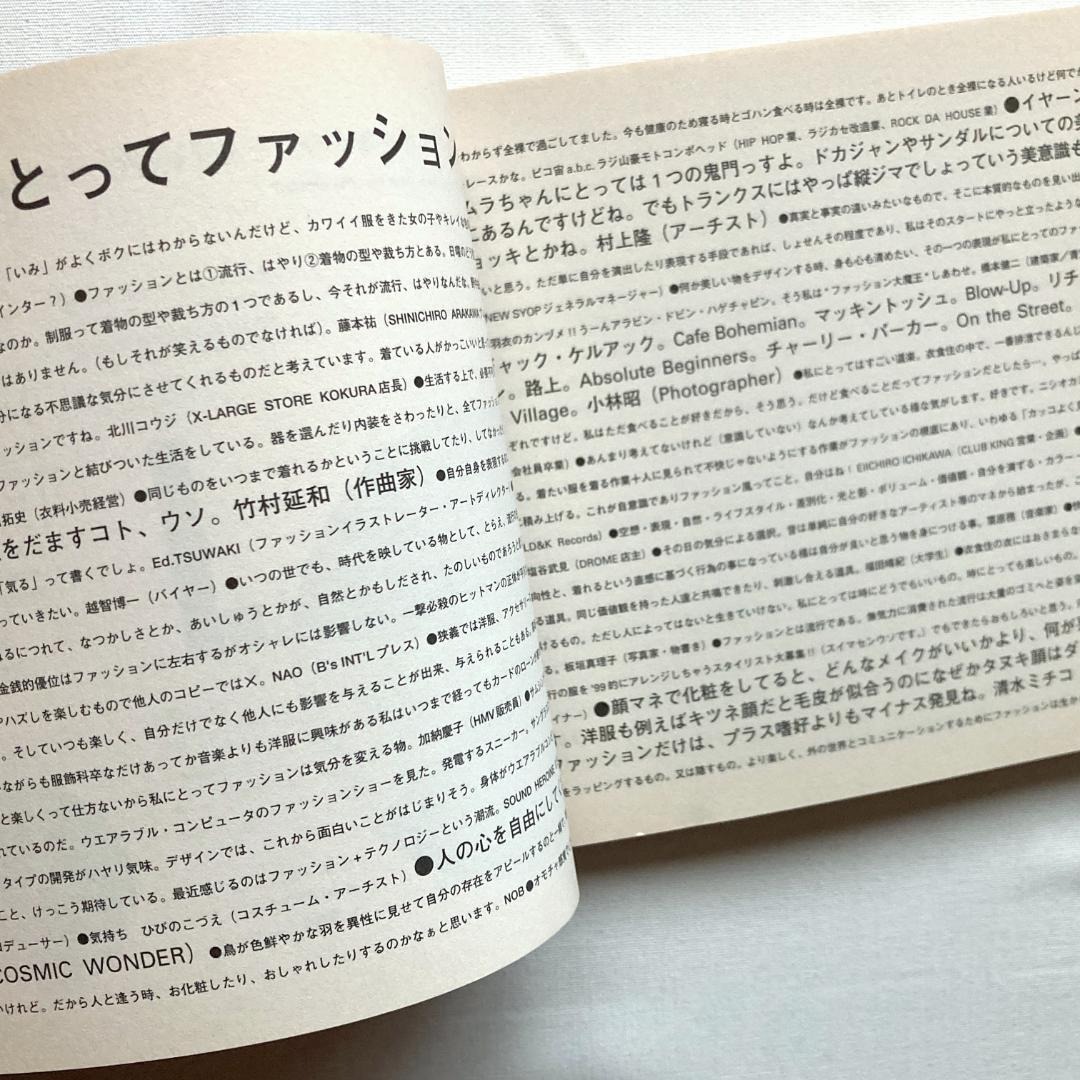 とってファッション
「いみ」がよくボクにはわからないんだけど、カワイイ服をきた女の子やキレイな
インター？）●ファッションとは①流行、はやり②着物の型や裁ち方とある。日曜の
なのか。制服って着物の型や裁ち方の1つであるし、今それが流行、はやりなんだな。
はありません。（もしそれが笑えるものでなければ）。藤本祐（SHINICHIRO ARAKAWA
分になる不思議な気分にさせてくれるものだと考えています。着ている人がかっこいいと
ッションですね。北川コウジ（X-LARGE STORE KOKURA店長）●生活する上で、
ファッションと結びついた生活をしている。器を選んだり内装をさわったりと、全てファッ
拓史（衣料小売経営）●同じものをいつまで着れるかということに挑戦してたり、してなかっ
をだますコト、ウソ。竹村延和（作曲家）●自分自身を表現する
「気る」って書くでしょ。Ed.TSUWAKI（ファッションイラストレーター・アートディレクター
っていきたい。越智博一（バイヤー）●いつの世でも、時代を映している物として、とらえ、
るにつれて、なつかしさとか、あいしゅうとかが、自然とかもしだされ、たのしいものであろうと
金銭的優位はファッションに左右するがオシャレには影響しない。一撃必殺のヒットマンの正体が
やハズしを楽しむもので他人のコピーでは×。NAO（B's INT'Lプレス）●狭義では洋服、アクセサリー
。そしていつも楽しく、自分だけでなく他人にも影響を与えることが出来、与えられることもある。
ながらも服飾科卒なだけあってか音楽よりも洋服に興味がある私はいつまで経ってもカードのローンが
と楽しくって仕方ないから私にとってファッションは気分を変える物。加納慶子（HMV販売員）●サム
れているのだ。ウエアラブル・コンピュータのファッションショーを見た。発電するスニーカー。サング
タイプの開発がハヤリ気味。デザインでは、これから面白いことがはじまりそう。身体がウエアラブルコン
こと、けっこう期待している。最近感じるのはファッション+テクノロジーという潮流。SOUND HEROINE
ロデューサー）●気持ち　ひびのこづえ（コスチューム・アーチスト）●人の心を自由にしてい
COSMIC WONDER）●鳥が色鮮やかな羽を異性に見せて自分の存在をアピールするのと一緒で、
いけれど。だから人と逢う時、お化粧したり、おしゃれしたりするのかなぁと思います。NOB●オモチャ
わからず全裸で過ごしてました。今も健康のため寝る時とゴハン食べる時は全裸です。あとトイレのとき全裸になる人いるけど何でか
レースかな。ピコ宙a.b.c.ラジ山豪モトコンポヘッド（HIP HOP業、ラジカセ改造業、ROCK DA HOUSE業）●イヤーン
ムラちゃんにとっては1つの鬼門っすよ。ドカジャンやサンダルについての
にあるんですけどね。でもトランクスにはやっぱ縦ジマでしょっていう美意識も
ョッキとかね。村上隆（アーチスト）●真実と事実の違いみたいなもので、そこに本質的なものを見い出
いと思う。ただ単に自分を演出したり表現する手段であれば、しょせんその程度であり、私はそのスタートにやっと立ったような
NEW SYOPジェネラルマネージャー）●何か美しい物をデザインする時、身も心も清めたい、その一つの表現が私にとってのファッ
羽衣のカンヅメ!!うーんアラビン・ドビン・ハゲチャビン。そう私は"ファッション大魔王"しあわせ。橋本健二（建築家／
ャック・ケルアック。Cafe Bohemian。マッキントッシュ。Blow-Up。リチ
。路上。Absolute Beginners。チャーリー・パーカー。On the Street。
Village。小林昭（Photographer）●私にとってはすごい道楽。衣食住の中で、一番排泄できるんじ
ぞれですけど。私はただ食べることが好きだから、そう思う。だけど食べることだってファッションだとしたら…。やっぱ
会社員卒業）●あんまり考えてないけれど（意識していない）なんか考えてしている様な気がします。好きです。ニシオカ
る。着たい服を着る作業＋人に見られて不快じゃないようにする作業がファッションの根底にあり、いわゆる「カッコよく
積み上げる。これが自意識でありファッション風ってこと。自分はね！EIICHIRO ICHIKAWA（CLUB KING営業・企画）●
LD&K Records）●空想・表現・自然・ライフスタイル・差別化・光と影・ボリューム・価値観・自分を満てる・カラー・
塩谷武見（DROME店主）●その日の気分による選択。昔は単純に自分の好きなアーティスト等のマネから始まったが、こ
向性と、着れるという直感に基づく行為の事になっている様は自分が良いと思う物を身につける事。栗原務（音楽家）●
る道具。同じ価値観を持った人達と共鳴できたり、刺激し合える道具。福田晴紀（大学生）●衣食住の衣にはおさまらな
けるもの。ただし人によってはないと生きていけない。私にとっては時にどうでもいいもの。時にとっても楽しいもの。
る。板垣真理子（写真家・物書き）●ファッションとは流行である。無気力に消費された流行は大量のゴミへと姿を
行の服を'99的にアレンジしちゃうスタイリスト大募集!!（スイマセンウソです。）でもできたらおもしろいと思う。
イナー）●顔マネで化粧をしてると、どんなメイクがいいかより、何が
す。洋服も例えばキツネ顔だと毛皮が似合うのになぜかタヌキ顔はダ
ファッションだけは、プラス嗜好よりもマイナス発見ね。清水ミチコ
をラッピングするもの。又は隠すもの。より楽しく、外の世界とコミュニケーションするためにファッションは生か